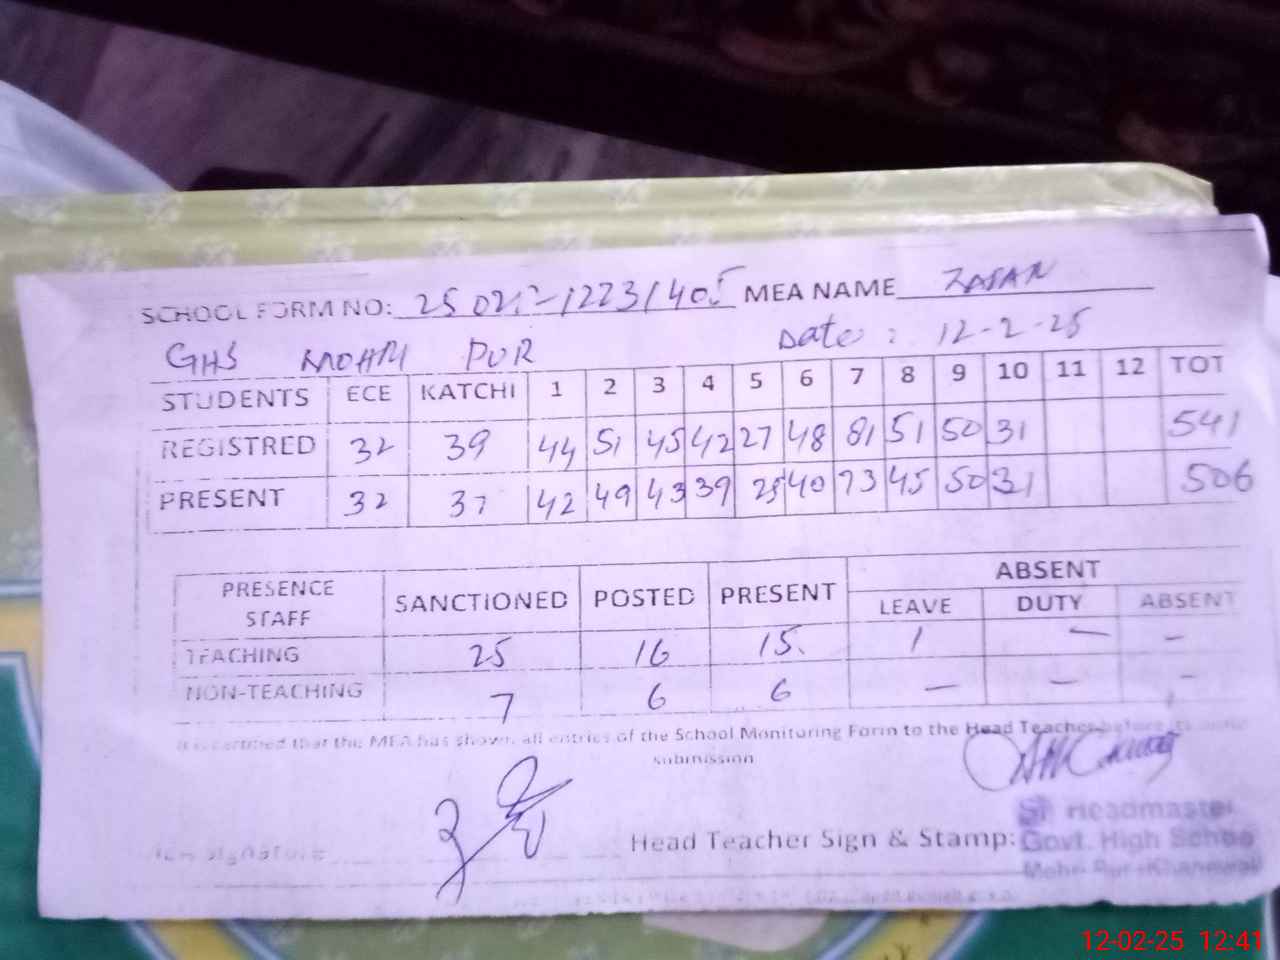 SCHOOL FORM NO: MEA NAME ZASAN
GHS MOHRI PUR Date : 12-2-25
STUDENTS ECE KATCHI 1 2 3 4 5 6 7 8 9 10 11 12 TOT
REGISTRED 32 39 44 51 45 42 27 48 81 51 50 31 541
PRESENT 32 37 42 49 43 39 25 40 73 45 50 31 506
PRESENCE STAFF SANCTIONED POSTED PRESENT ABSENT
LEAVE DUTY ABSENT
TEACHING 25 16 15. 1 — -
NON-TEACHING 7 6 6 — — -
It is certified that the MEA has shown all entries of the School Monitoring Form to the Head Teacher before
submission
Head Teacher Sign & Stamp:
Sr Headmaster
Govt. High School
Mohri Pur (Khanewal)
Signature
12-02-25 12:41